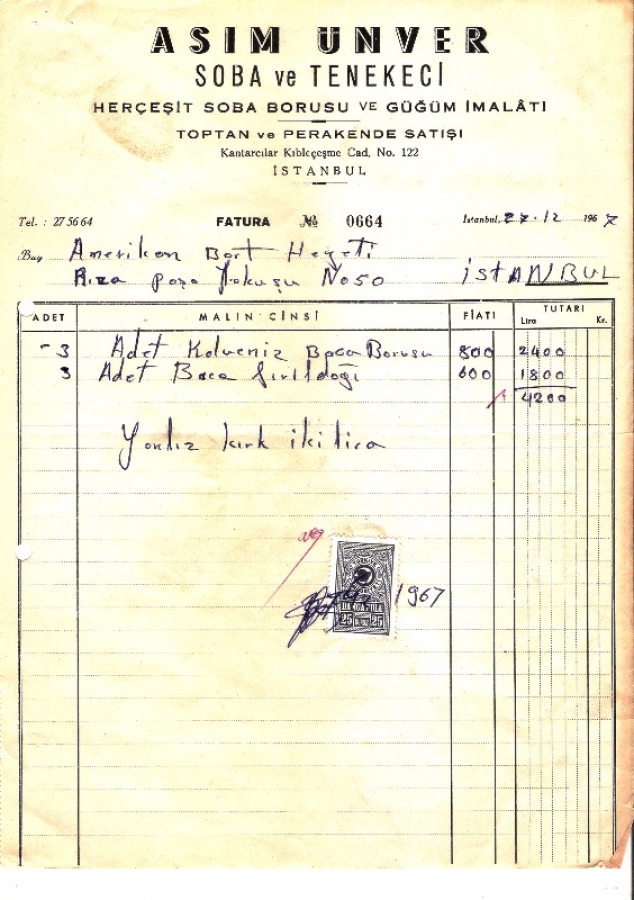 ASIM ÜNVER
SOBA ve TENEKECİ
HERÇEŞİT SOBA BORUSU VE GÜĞÜM İMALÂTI
TOPTAN ve PERAKENDE SATIŞI
Kantarcılar Kıbleçeşme Cad. No. 122
İSTANBUL
Tel. : 27 56 64 FATURA № 0664 İstanbul, 27.12 1967
Bay Amerikan Bort Heyeti
Rıza paşa Yokuşu No 50 İSTANBUL
ADET MALIN CİNSİ FİATI TUTARI
Lira Kr.
-3 Adet Kalveniz Baca Borusu 800 2400
3 Adet Baca 600 1800
4200
Yalnız kırk iki lira
1967
DAMGA PULU
25 25